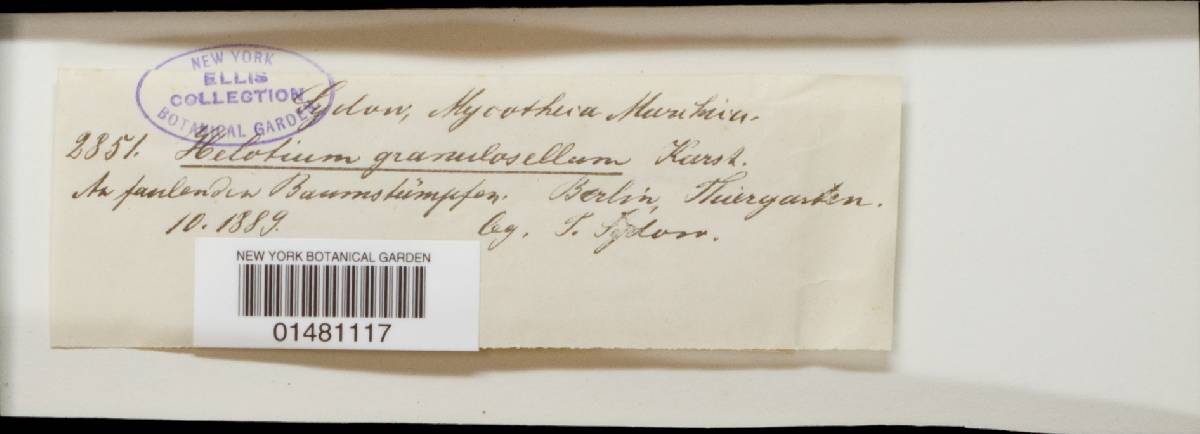 NEW YORK
ELLIS
COLLECTION
BOTANICAL GARDEN
Sydow, Mycotheca Marchica.
2851. Helotium granulosellum Karst.
An faulenden Baumstümpfen. Berlin, Thiergarten.
10. 1889. leg. P. Sydow.
NEW YORK BOTANICAL GARDEN
01481117